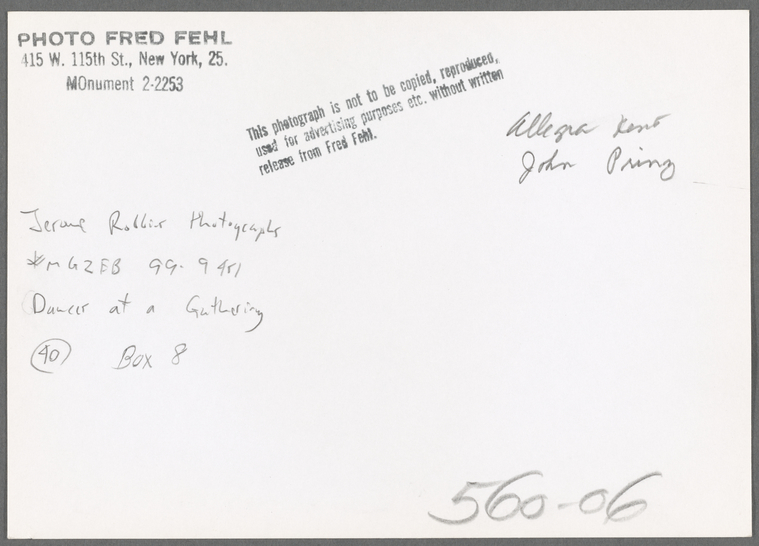 PHOTO FRED FEHL
415 W. 115th St., New York, 25.
MOnument 2-2253
This photograph is not to be copied, reproduced,
used for advertising purposes etc. without written
release from Fred Fehl.
Allegra Kent
John Prinz
Jerome Robbins Photographs
*MGZEB 99-9451
Dances at a Gathering
40 Box 8
560-06